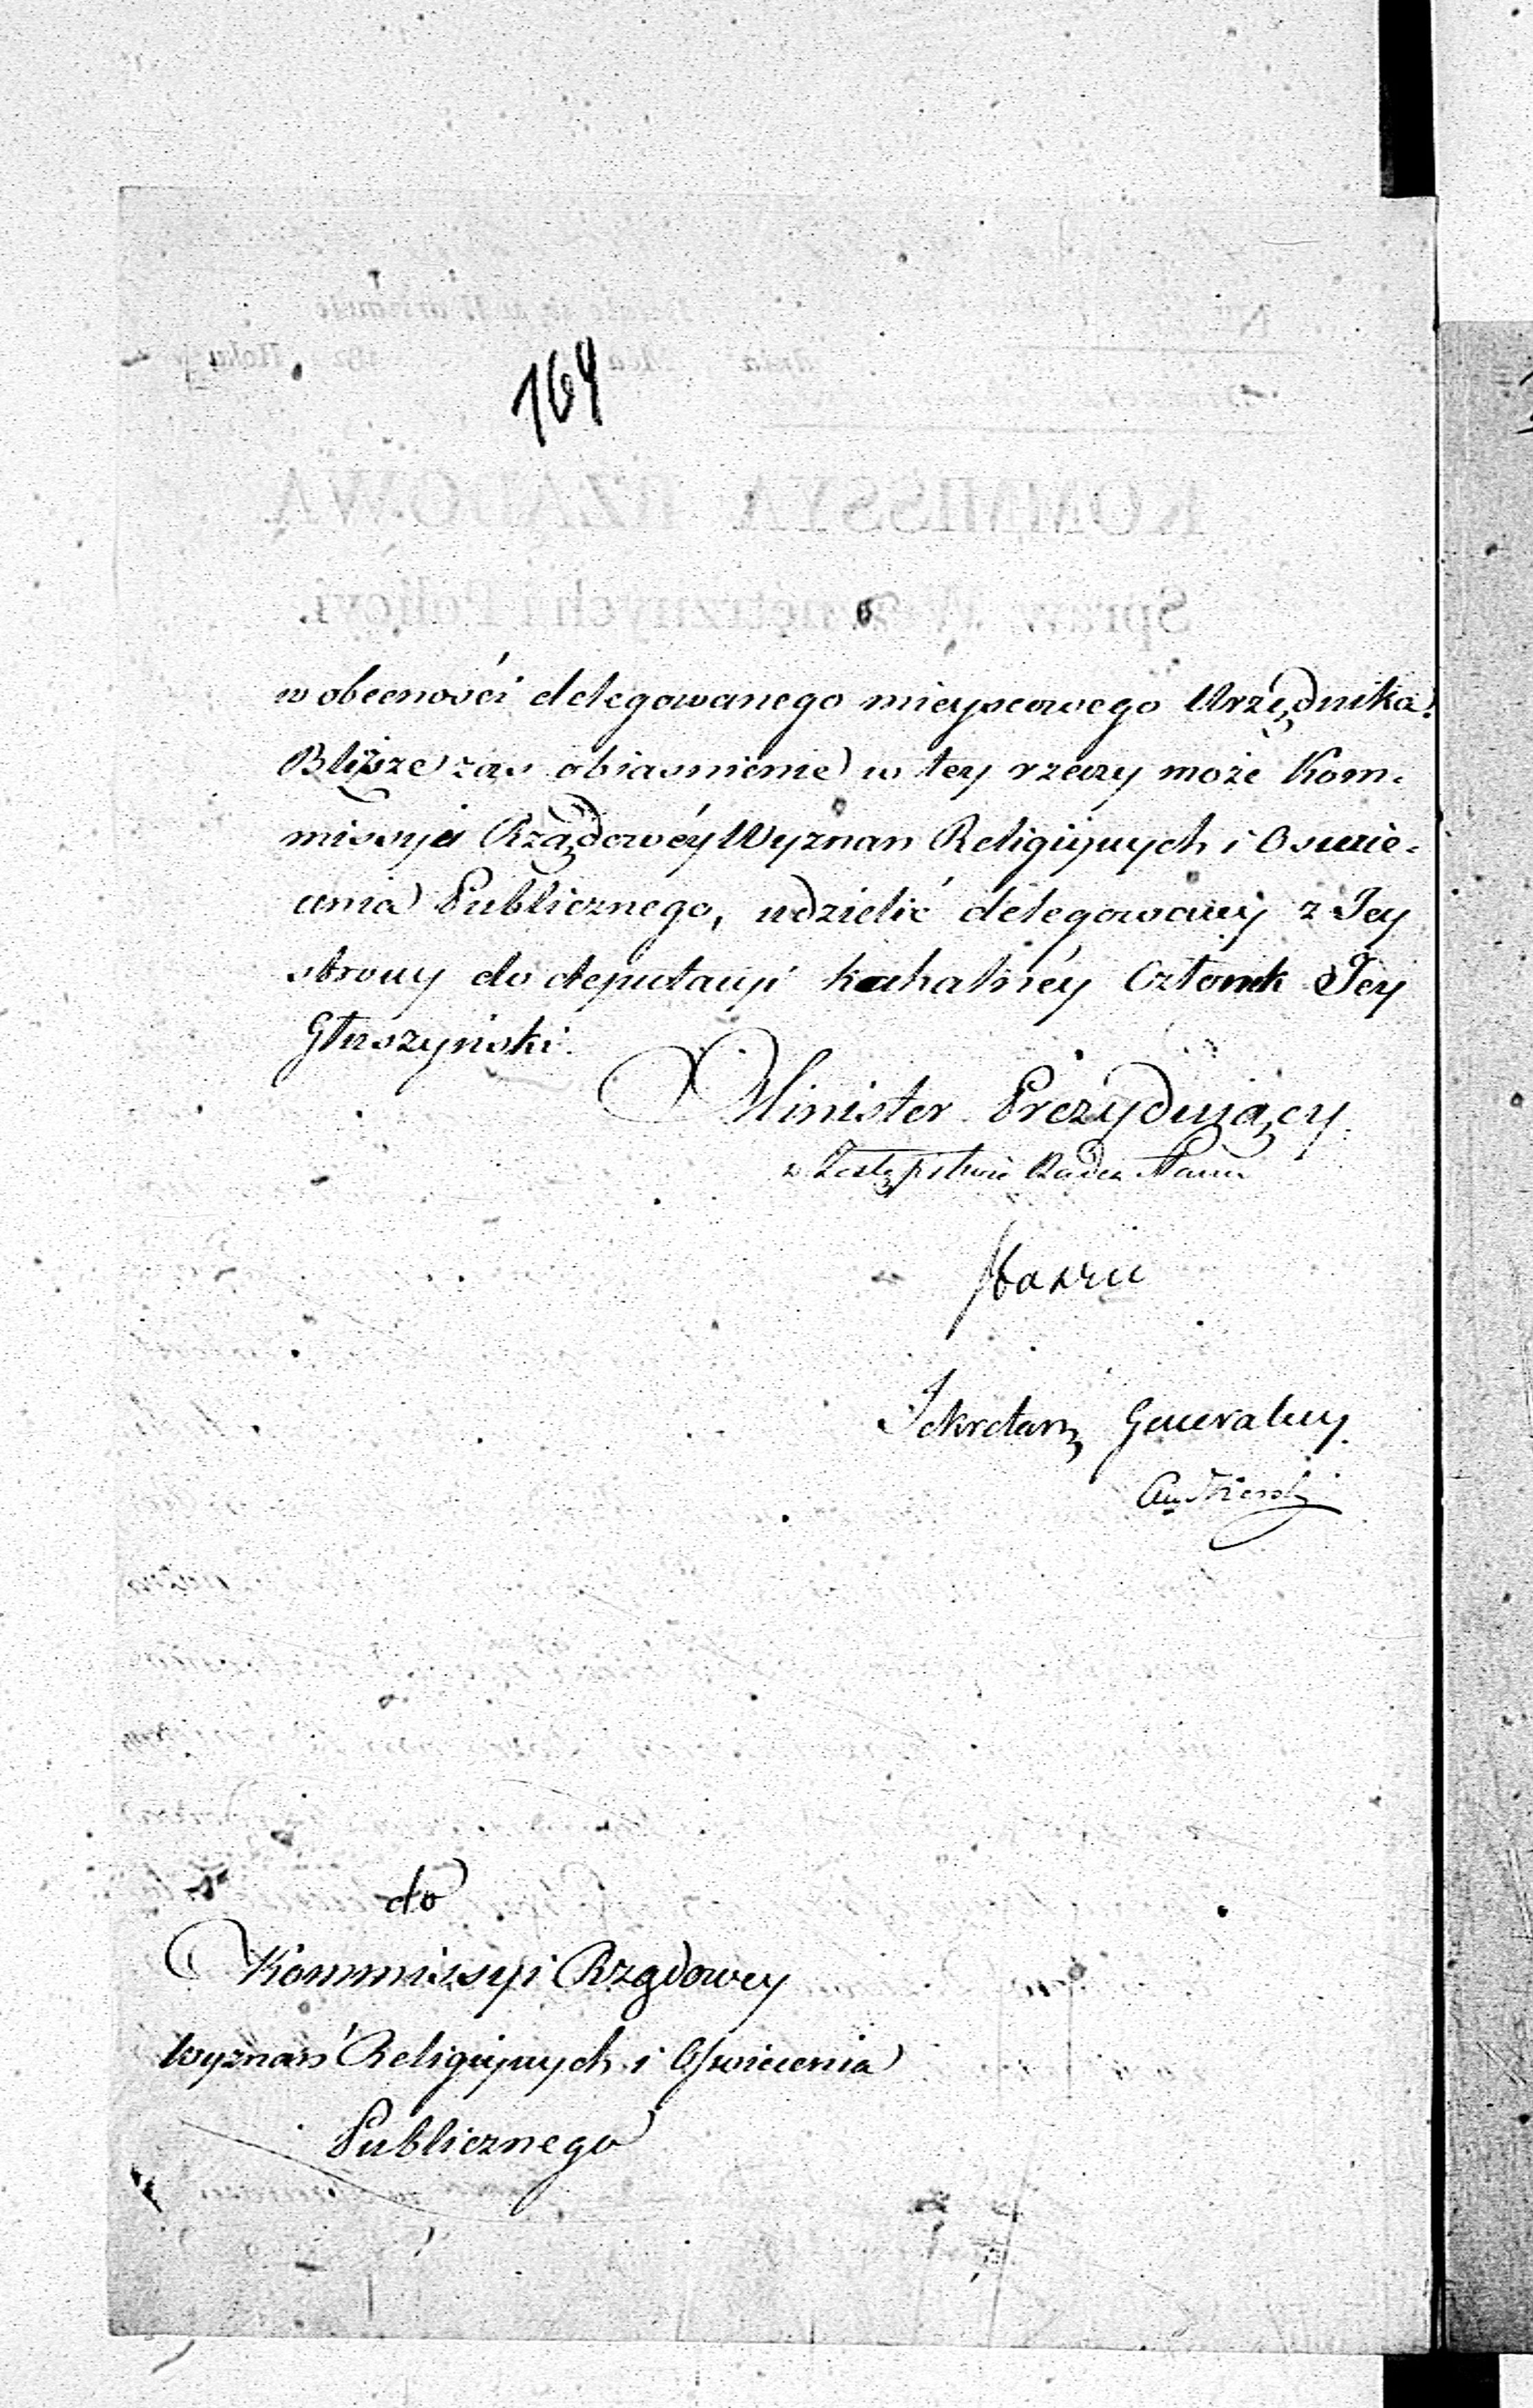 164
w obecności delegowanego mieyscowego Urzędnika.
Bliższe zaś obiasnienie w tey rzeczy może Kom-
missyi Rządowéy Wyznan Religiynych i Oswie-
cenia Publicznego, udzielić delegowany z Jey
strony do deputacyi kahalnéy Członek Jey
Głuszyński.
Minister Prezydujący
w Zastępstwie Radca Stanu
Staszic
Sekretarz Generalny
do
Kommissyi Rządowey
Wyznań Religiynych i Oświecenia
Publicznego